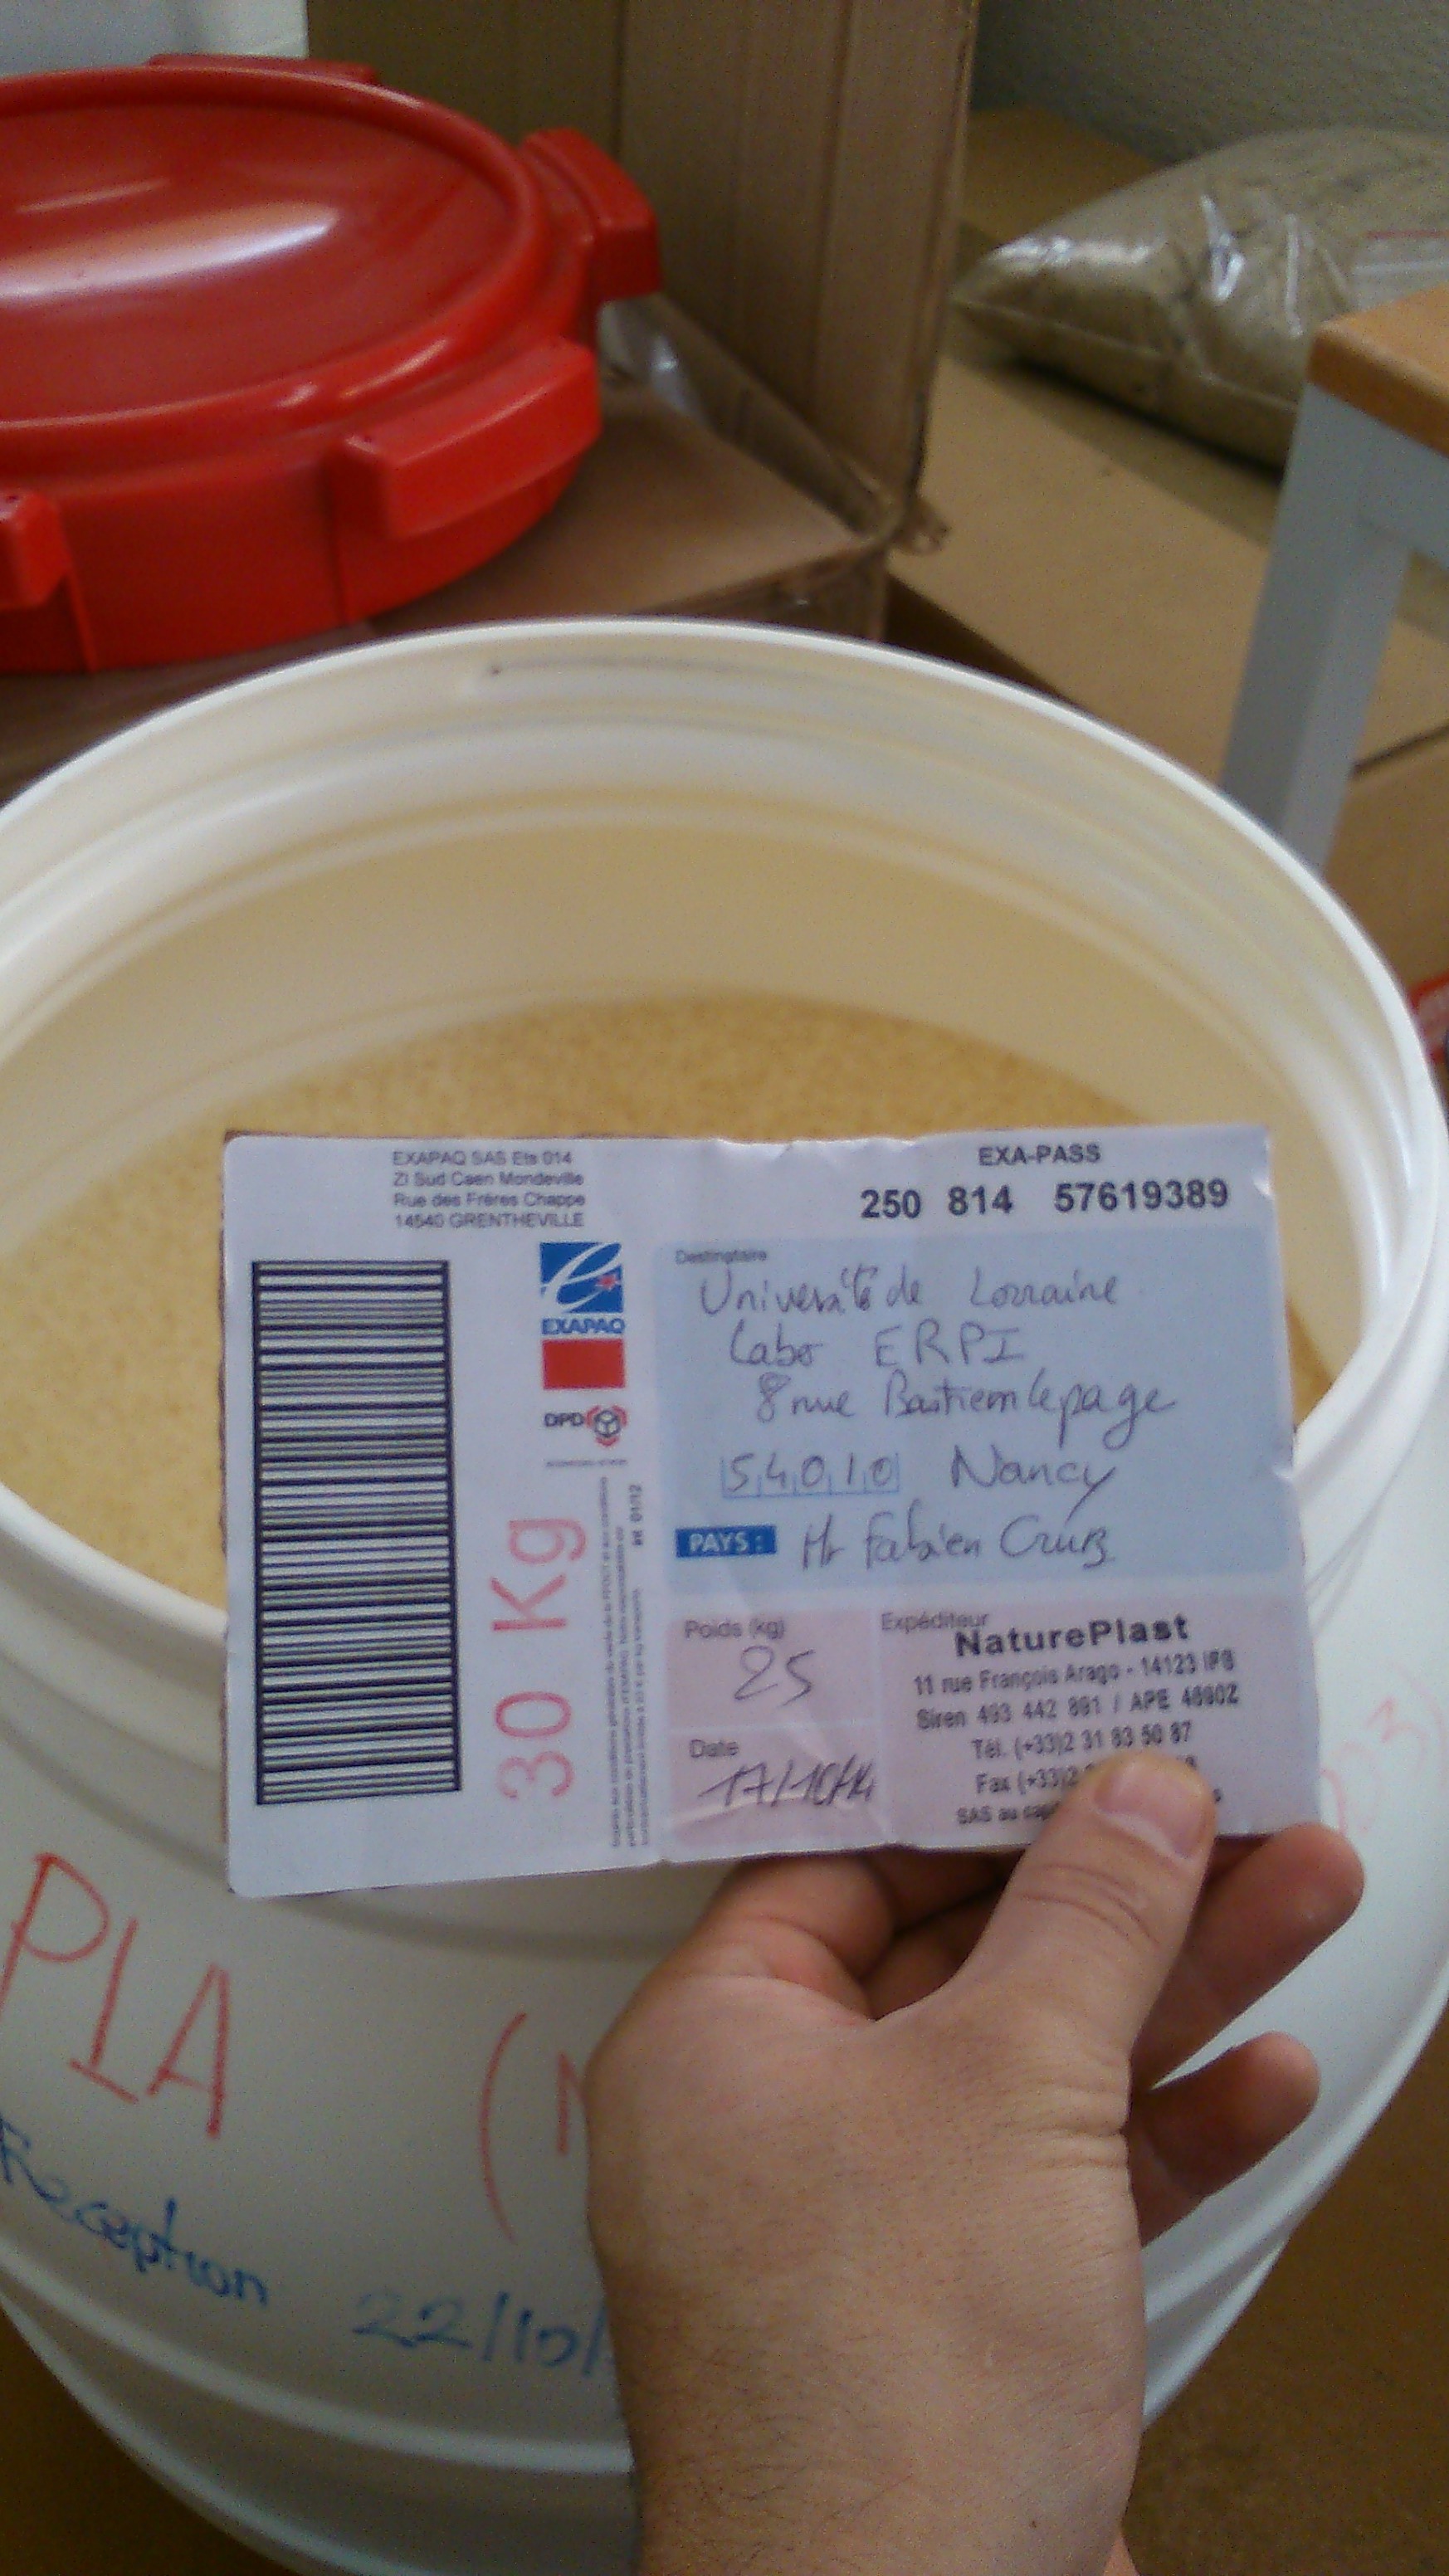 EXAPAQ SAS Ets 014
ZI Sud Caen Mondeville
Rue des Frères Chappe
14540 GRENTHEVILLE
EXA-PASS
250 814 57619389
EXAPAQ
DPD
30 Kg
Destinataire
Université de Lorraine
Labo ERPI
8 rue Bastien lepage
54010 Nancy
PAYS: Mr Fabien Cruz
Poids (kg)
25
Date
17/10/14
Expéditeur
NaturePlast
11 rue François Arago - 14123 IFS
Siren 493 442 881 / APE 4690Z
Tél. (+33)2 31 83 50 87
Fax (+33)2
SAS au
PLA (
Reception 22/10/